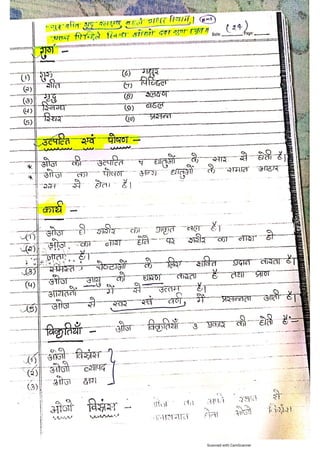 गुरु शीत मृदु
Date (24) Page
गुण -
(1) गुरु (6) मधुर
(2) शीत (7) पिच्छिल
(3) मृदु (8) श्लक्ष्ण
(4) स्निग्ध (9) बहल
(5) स्थिर (10) प्रसन्न
उत्पत्ति एवं पोषण -
* ओज की उत्पत्ति धातुओं के सार से होती है।
* ओज का पोषण अन्य धातुओं के समान आहार
रस से होता है।
कार्य -
(1) ओज ही शरीर का प्राकृत बल है।
(2) ओज का नाश होने पर शरीर का नाश हो
जाता है।
(3) समस्त चेष्टाओं के लिए शक्ति प्रदान करता है।
(4) ओज आयु को धारण करता है तथा प्राण
आयतनों में से उत्तम है।
(5) ओज से स्वर एवं वर्ण में प्रसन्नता आती है।
विकृतियाँ - ओज विकृतियाँ 3 प्रकार की होती है -
(1) ओजो विस्रंस
(2) ओजो व्यापद
(3) ओज क्षय
ओजो विस्रंस - ओज का अपने स्थान से
होना ओजो विस्रंस
Scanned with CamScanner